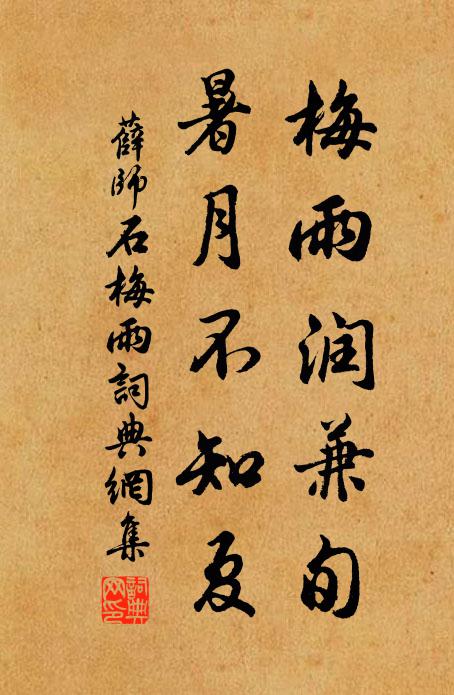 梅雨润兼旬
暑月不知夏
薛師石梅雨詞典網集
詞典
网印